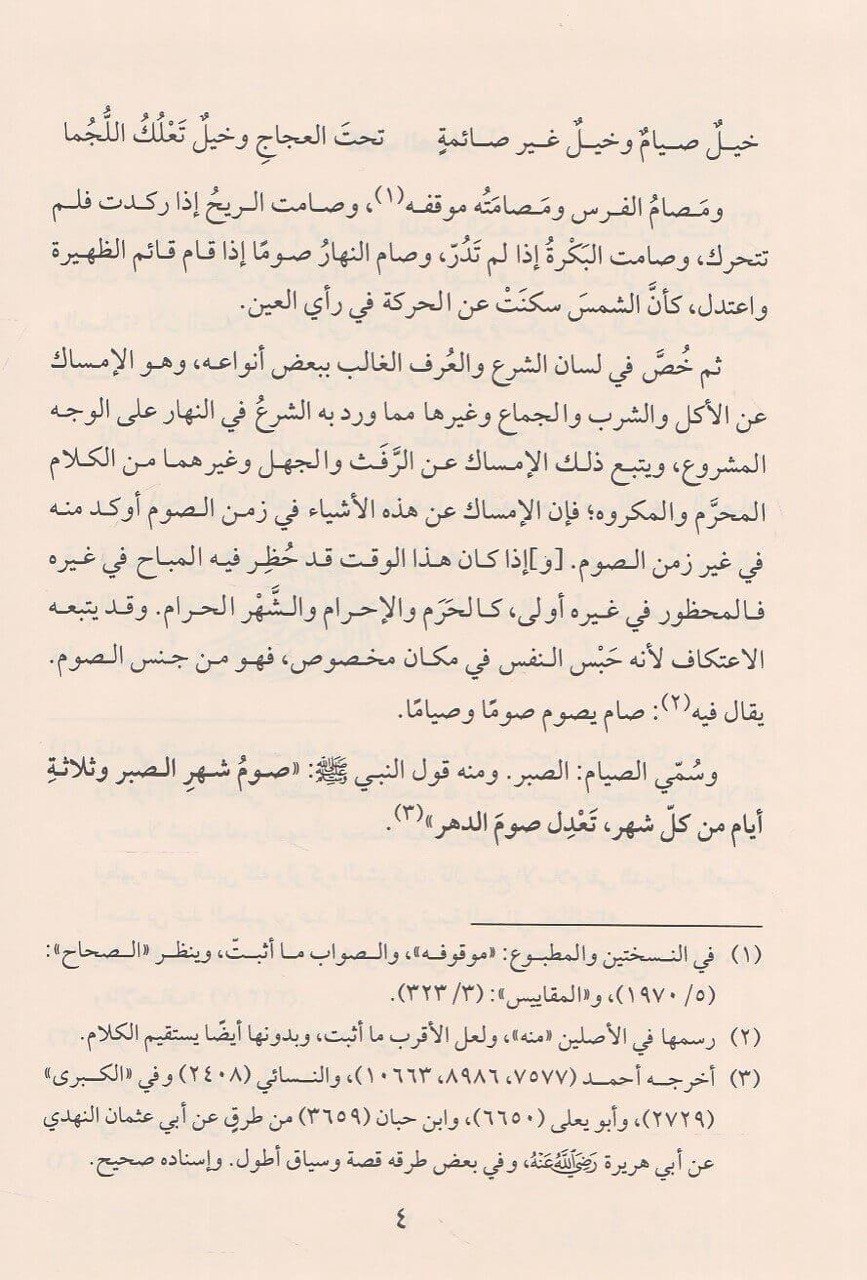 خيلٌ صيامٌ وخيلٌ غير صائمةٍ تحتَ العجاجِ وخيلٌ تَعْلُكُ اللُّجُما
ومَصامُ الفرس ومَصامَتُه موقفه(١)، وصامت الريحُ إذا ركدت فلم
تتحرك، وصامت البَكْرةُ إذا لم تَدُرّ، وصام النهارُ صومًا إذا قام قائم الظهيرة
واعتدل، كأنَّ الشمسَ سكنَتْ عن الحركة في رأي العين.
ثم خُصَّ في لسان الشرع والعُرف الغالب ببعض أنواعه، وهو الإمساك
عن الأكل والشرب والجماع وغيرها مما ورد به الشرعُ في النهار على الوجه
المشروع، ويتبع ذلك الإمساك عن الرَّفَث والجهل وغيرهما من الكلام
المحرَّم والمكروه؛ فإن الإمساك عن هذه الأشياء في زمن الصوم أوكد منه
في غير زمن الصوم. [و]إذا كان هذا الوقت قد حُظِر فيه المباح في غيره
فالمحظور في غيره أولى، كالحَرَم والإحرام والشَّهْر الحرام. وقد يتبعه
الاعتكاف لأنه حَبْس النفس في مكان مخصوص، فهو من جنس الصوم.
يقال فيه(٢): صام يصوم صومًا وصيامًا.
وسُمّي الصيام: الصبر. ومنه قول النبي ﷺ: «صومُ شهرِ الصبر وثلاثةِ
أيام من كلّ شهر، تَعْدِل صومَ الدهر»(٣).
(١) في النسختين والمطبوع: «موقوفه»، والصواب ما أثبتّ، وينظر «الصحاح»:
(٥/ ١٩٧٠)، و«المقاييس»: (٣/ ٣٢٣).
(٢) رسمها في الأصلين «منه»، ولعل الأقرب ما أثبت، وبدونها أيضًا يستقيم الكلام.
(٣) أخرجه أحمد (٧٥٧٧، ٨٩٨٦، ١٠٦٦٣)، والنسائي (٢٤٠٨) وفي «الكبرى»
(٢٧٢٩)، وأبو يعلى (٦٦٥٠)، وابن حبان (٣٦٥٩) من طرقٍ عن أبي عثمان النهدي
عن أبي هريرة رَضِيَ اللَّهُ عَنْهُ، وفي بعض طرقه قصة وسياق أطول. وإسناده صحيح.
٤